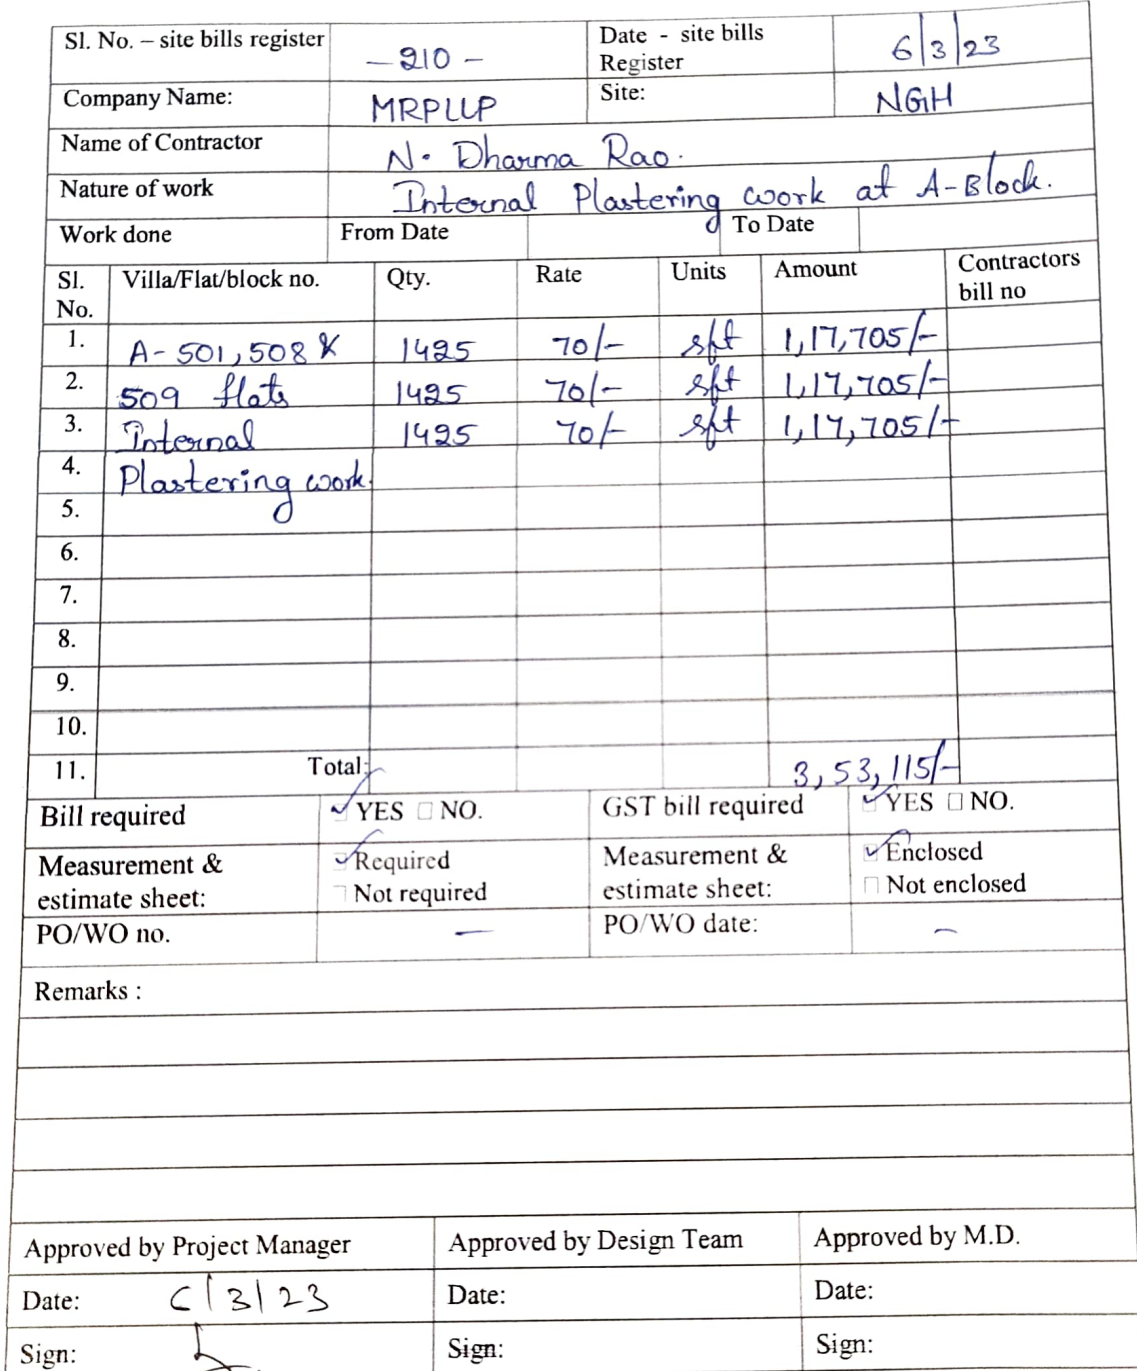 Sl. No. – site bills register – 210 – Date - site bills Register 6/3/23
Company Name: MRPLLP Site: NGH
Name of Contractor N. Dharma Rao.
Nature of work Internal Plastering work at A-Block.
Work done From Date To Date
Sl. No. Villa/Flat/block no. Qty. Rate Units Amount Contractors bill no
1. A- 501, 508 & 1425 70/- sft 1,17,705/-
2. 509 flats 1425 70/- sft 1,17,705/-
3. Internal 1425 70/- sft 1,17,705/-
4. Plastering work.
5.
6.
7.
8.
9.
10.
11. Total: 3,53,115/-
Bill required ✓ YES □ NO. GST bill required ✓ YES □ NO.
Measurement & estimate sheet: ✓ Required □ Not required Measurement & estimate sheet: ✓ Enclosed □ Not enclosed
PO/WO no. – PO/WO date: –
Remarks :
Approved by Project Manager Approved by Design Team Approved by M.D.
Date: 6/3/23 Date: Date:
Sign: Sign: Sign: